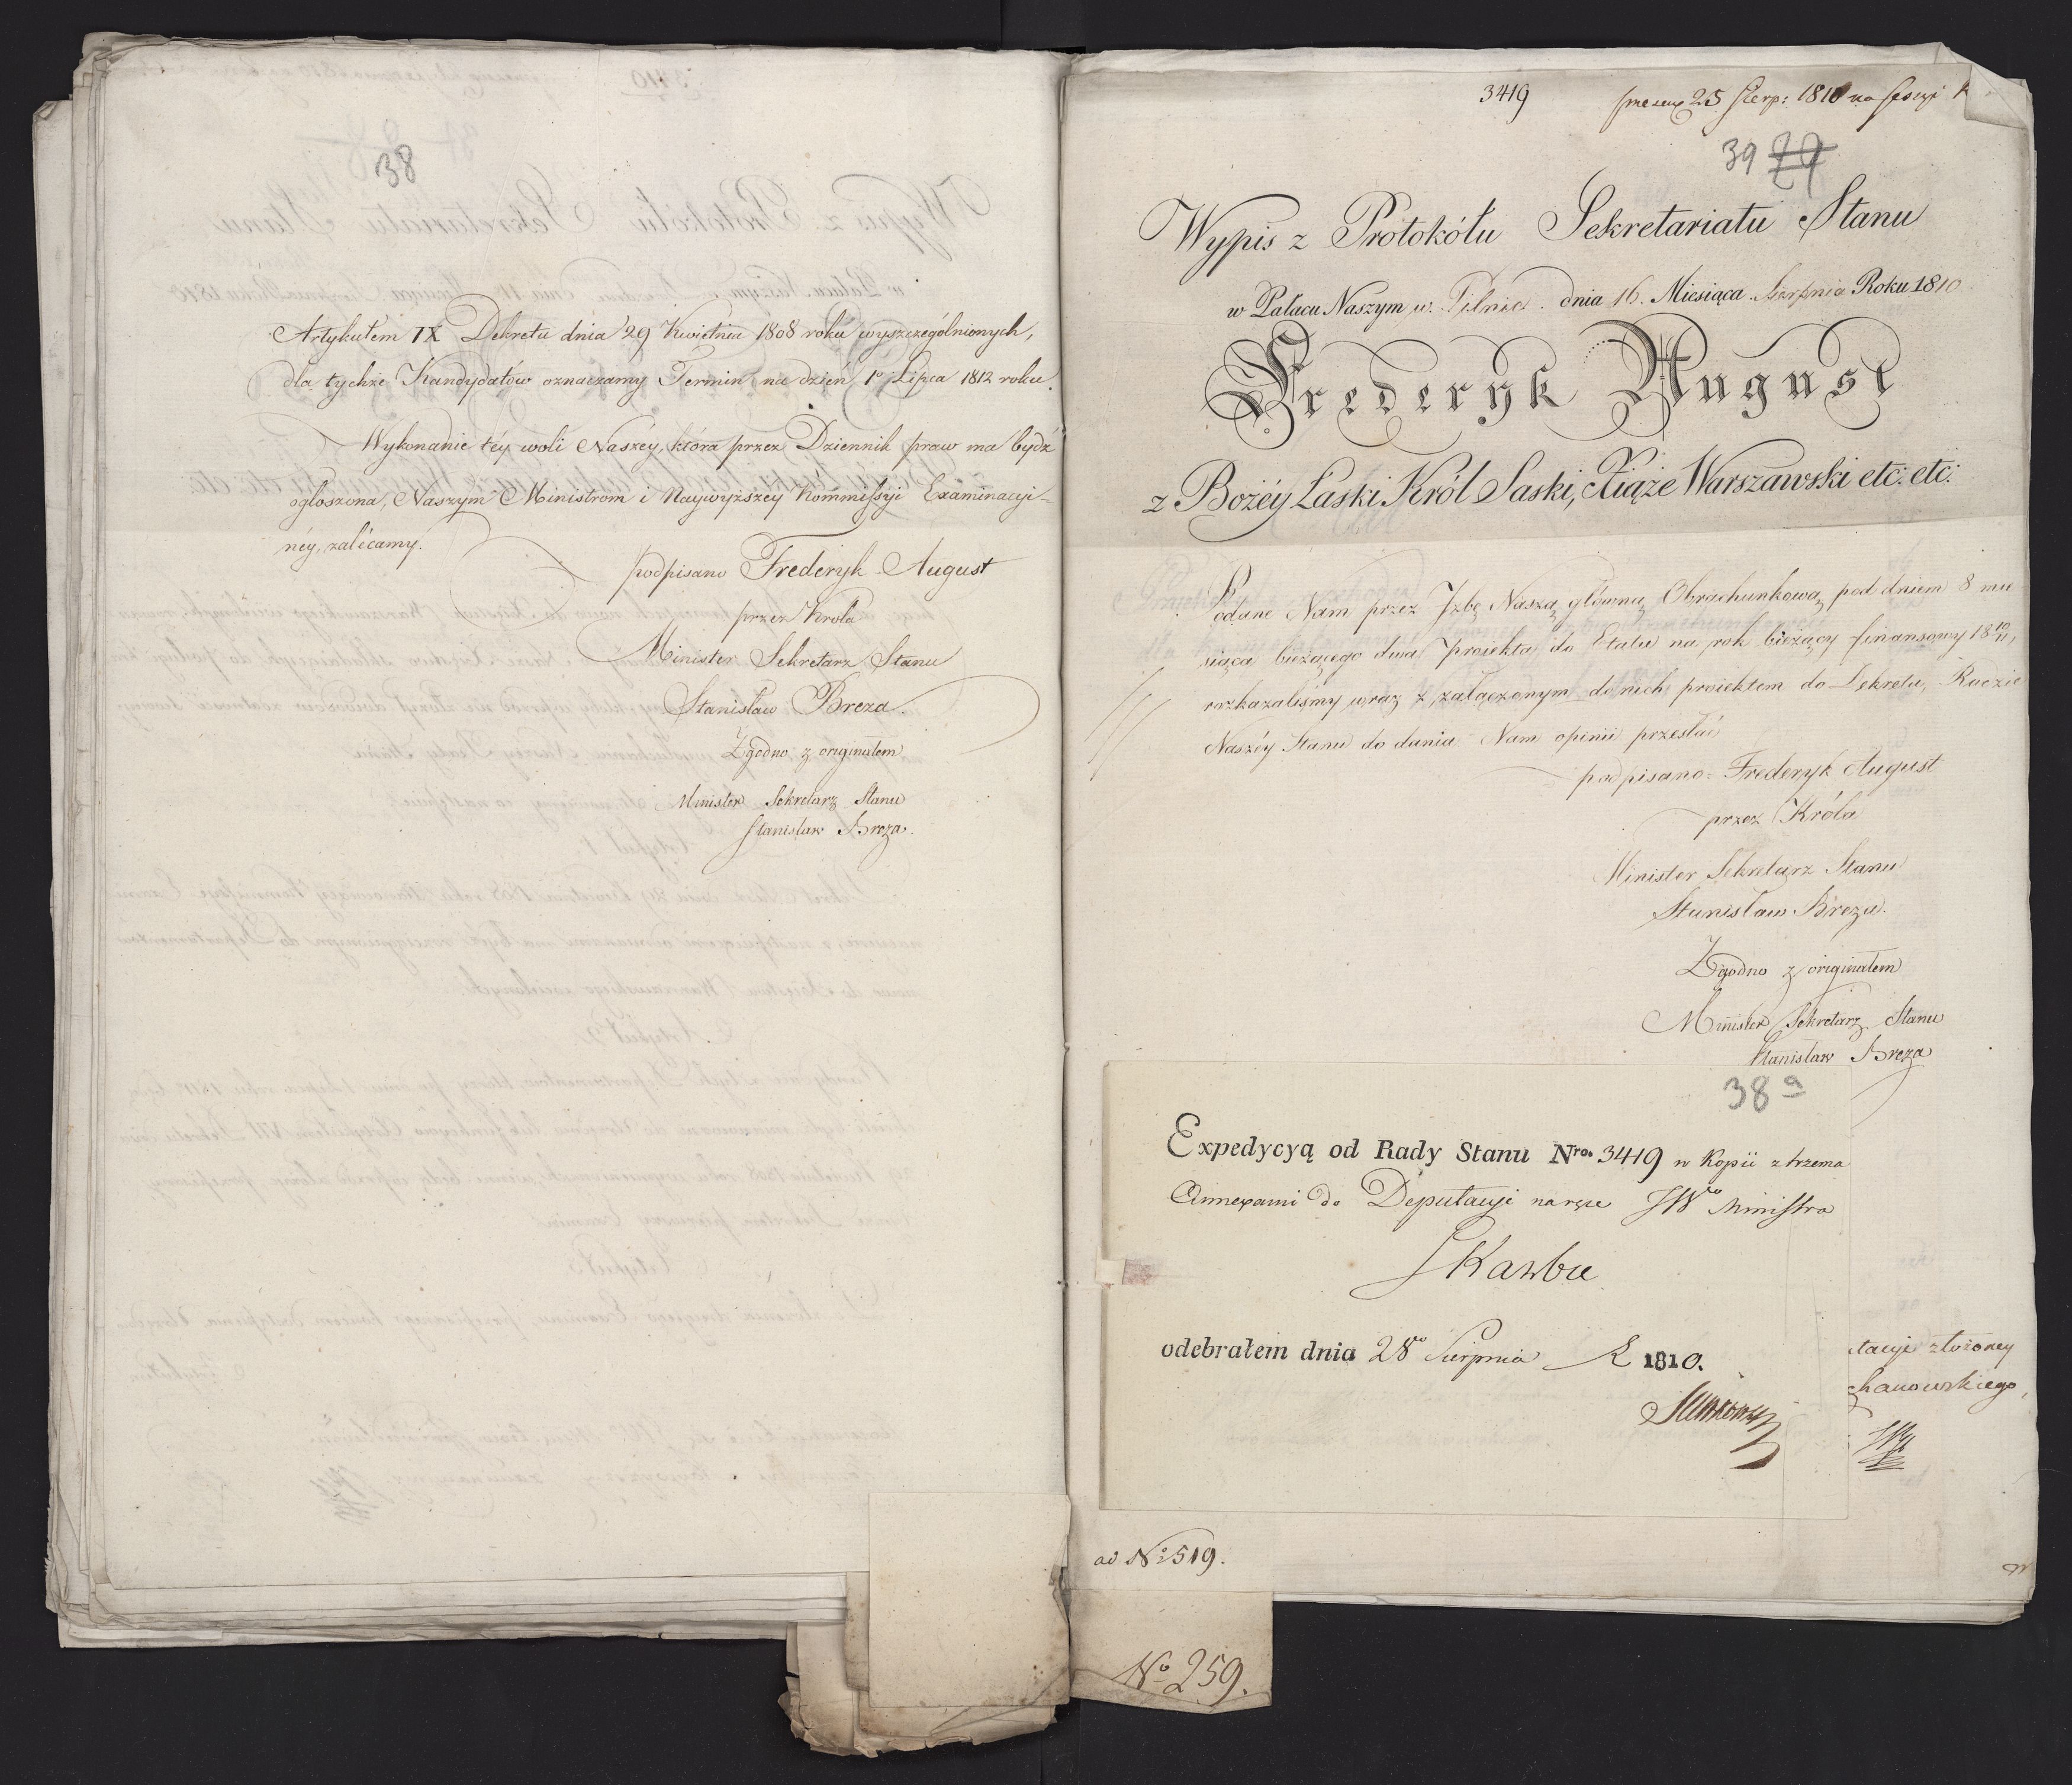 38
Artykułem IX Dekretu dnia 29 Kwietnia 1808 roku wyszczególnionych,
dla tychże Kandydatów oznaczamy Termin na dzień 1o Lipca 1812 roku.
Wykonanie téy woli Naszéy, która przez Dziennik praw ma bydź
ogłoszona, Naszym Ministrom i Naywyższey Kommissyi Examinacyi-
néy, zalécamy.
podpisano Frederyk August
przez Króla
Minister Sekretarz Stanu
Stanisław Breza.
Zgodno z originałem
Minister Sekretarz Stanu
Stanisław Breza.
3419 25 Sierp: 1810 na sessyi
39 29
Wypis z Protokółu Sekretariatu Stanu
w Pałacu Naszym w. Pilnic. dnia 16. Miesiąca Sierpnia Roku 1810
Frederyk August
z Bożéy Łaski Król Saski, Xiąże Warszawski etc: etc:
Podane Nam przez Jzbę Naszą główną Obrachunkową pod dniem 8 mie
siąca bieżącego dwa proiekta do Etatu na rok bieżący finansowy 18 10/11,
rozkazaliśmy wraz z załączonym do nich proiektem do Dekretu, Radzie
Naszéy Stanu do dania Nam opinii przesłać
podpisano: Frederyk August
przez Króla
Minister Sekretarz Stanu
Stanisław Breza.
Zgodno z originałem
Minister Sekretarz Stanu
Stanisław Breza
38 a
Expedycyą od Rady Stanu Nro. 3419 w Kopii z trzema
Annexami do Deputacyi na ręce JWo Ministra
Skarbu
odebrałem dnia 28o Sierpnia R 1810.
tacyi złożoney
chanowskiego,
ad No 519.
No 259.